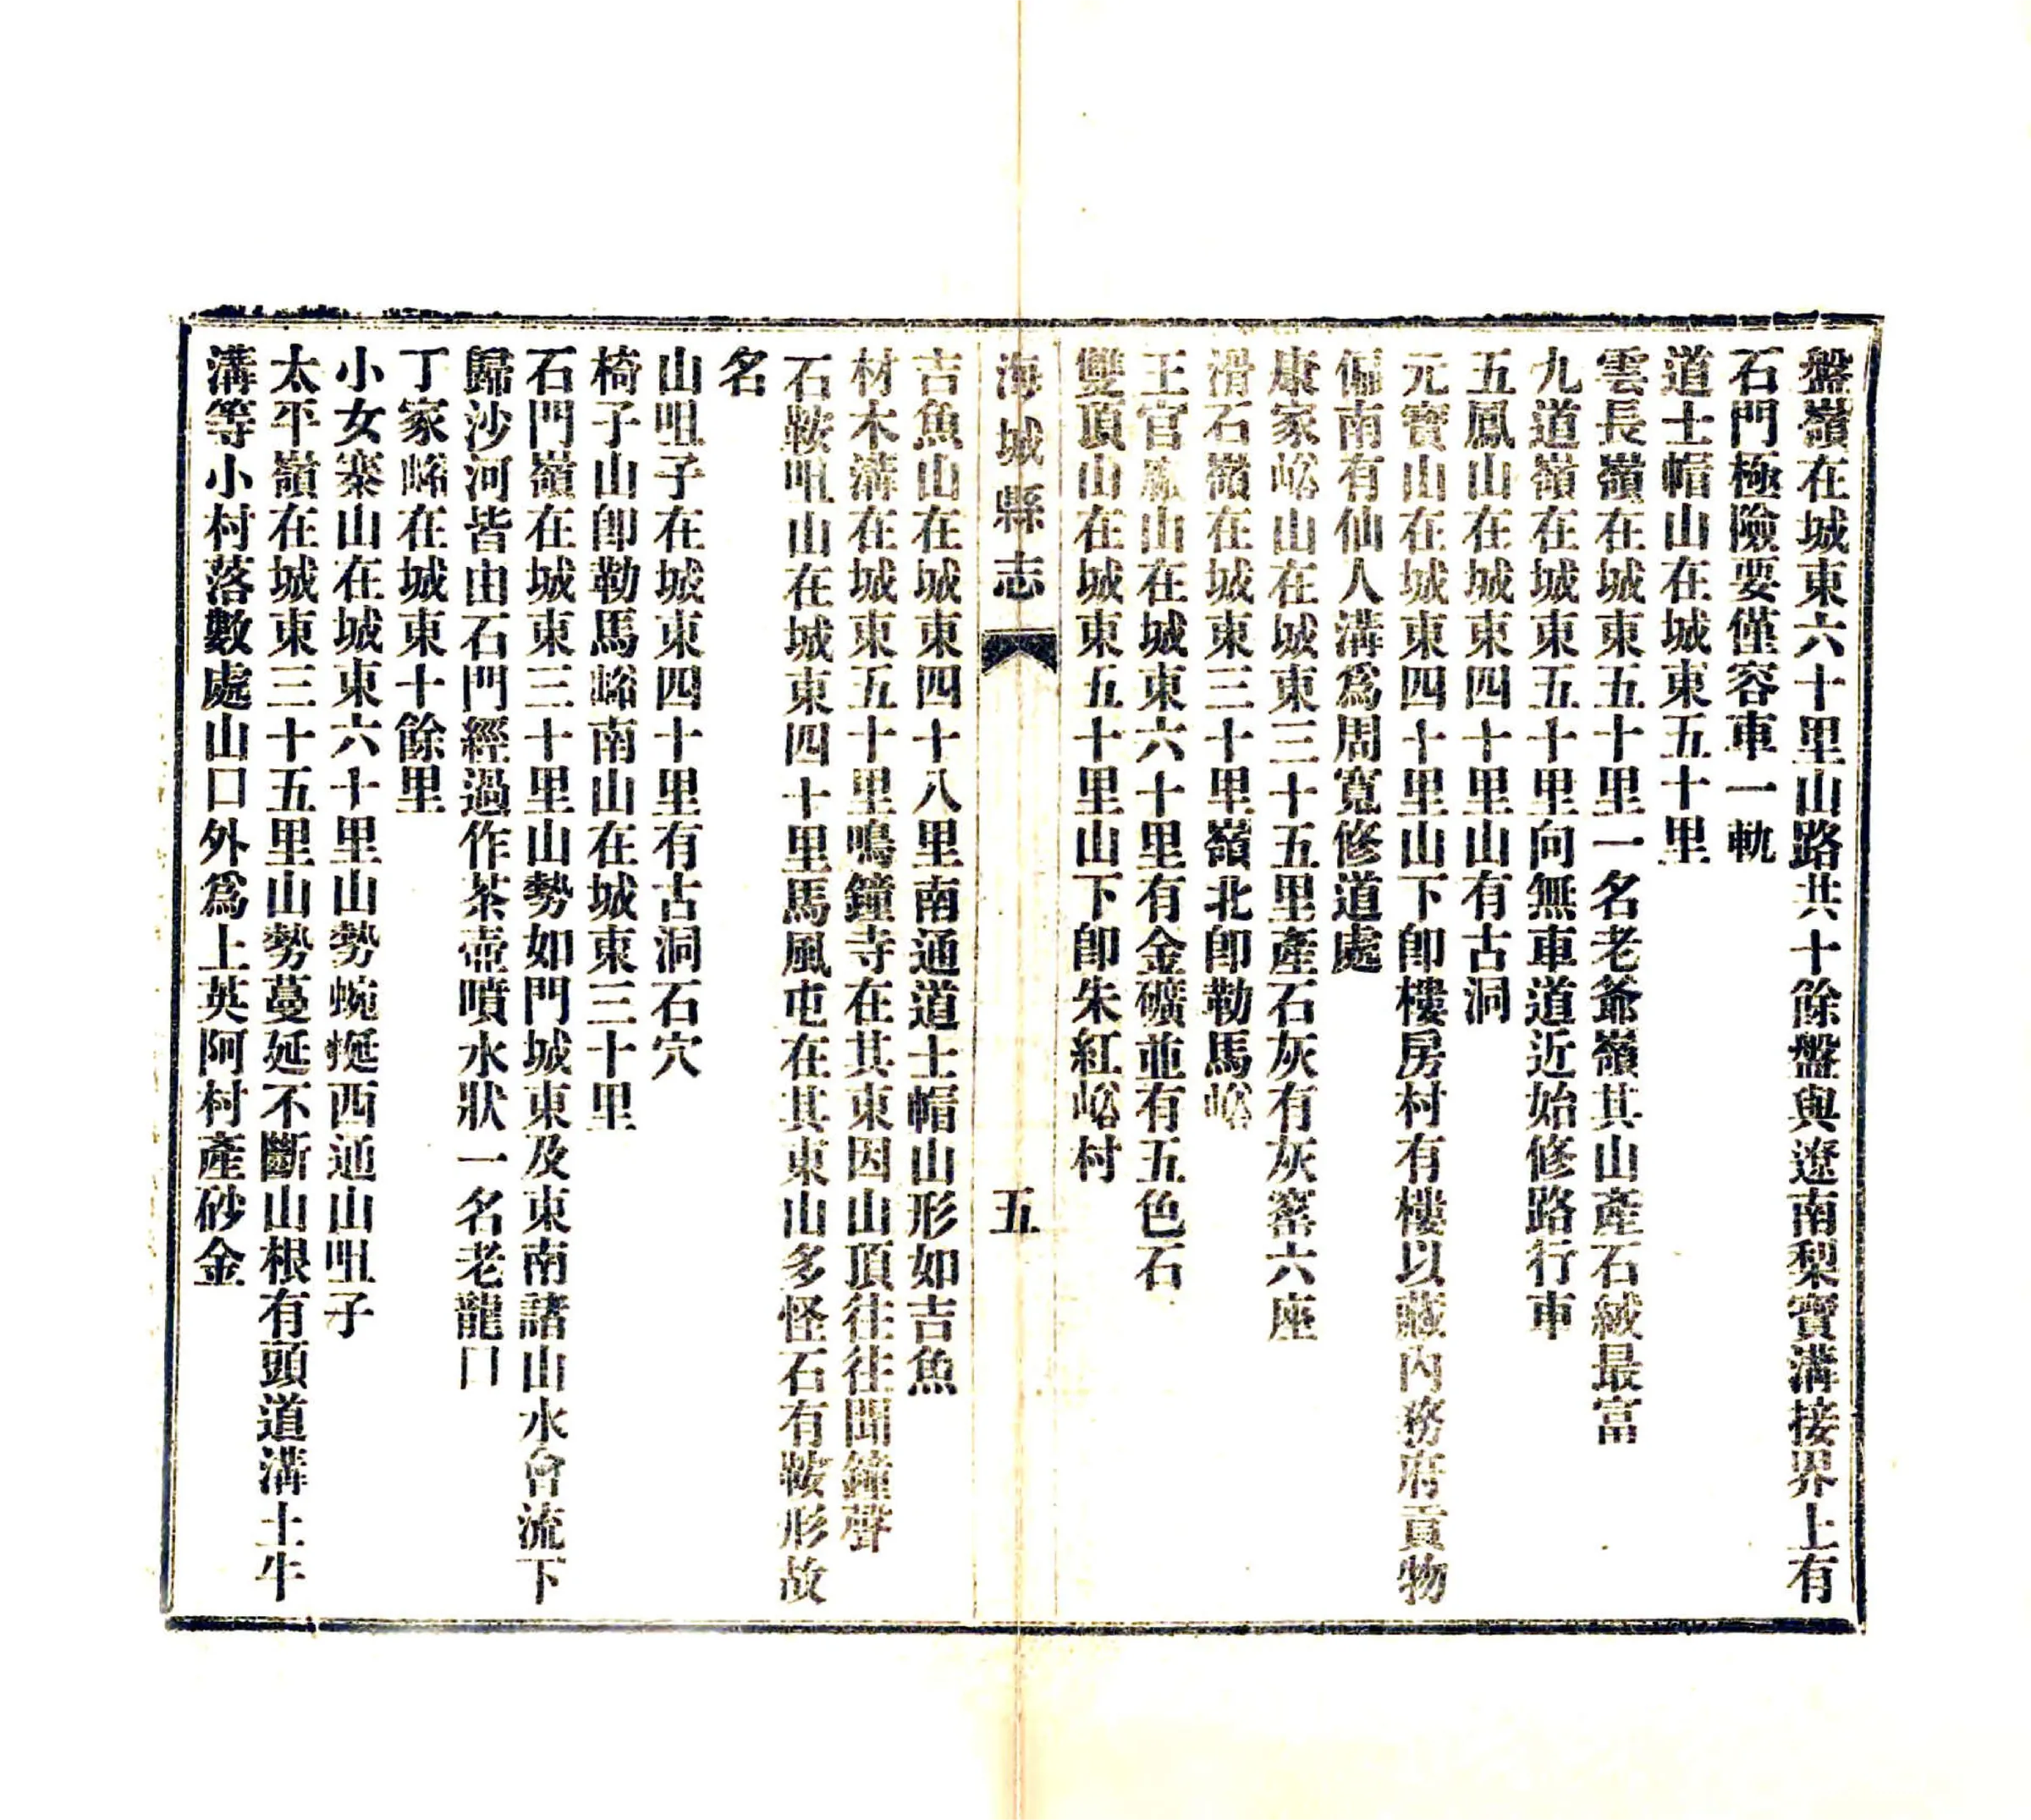 盤嶺在城東六十里山路共十餘盤與遼南梨寶溝接界上有
石門極險要僅容車一軌
道士帽山在城東五十里
雲長嶺在城東五十里一名老爺嶺其山產石絨最富
九道嶺在城東五十里向無車道近始修路行車
五鳳山在城東四十里山有古洞
元寶山在城東四十里山下卽樓房村有樓以藏內務府貢物
偏南有仙人溝爲周寬修道處
康家峪山在城東三十五里產石灰有灰窰六座
滑石嶺在城東三十里嶺北卽勒馬峪
王官山在城東六十里有金礦並有五色石
雙頂山在城東五十里山下卽朱紅峪村
海城縣志
五
吉魚山在城東四十八里南通道士帽山形如吉魚
材木溝在城東五十里鳴鐘寺在其東因山頂往往聞鐘聲
石鞍咀山在城東四十里馬風屯在其東山多怪石有鞍形故
名
山咀子在城東四十里有古洞石穴
椅子山卽勒馬峪南山在城東三十里
石門嶺在城東三十里山勢如門城東及東南諸山水會流下
歸沙河皆由石門經過作茶壺噴水狀一名老龍口
丁家峪在城東十餘里
小女寨山在城東六十里山勢蜿蜒西通山咀子
太平嶺在城東三十五里山勢蔓延不斷山根有頭道溝土牛
溝等小村落數處山口外爲上英阿村產砂金